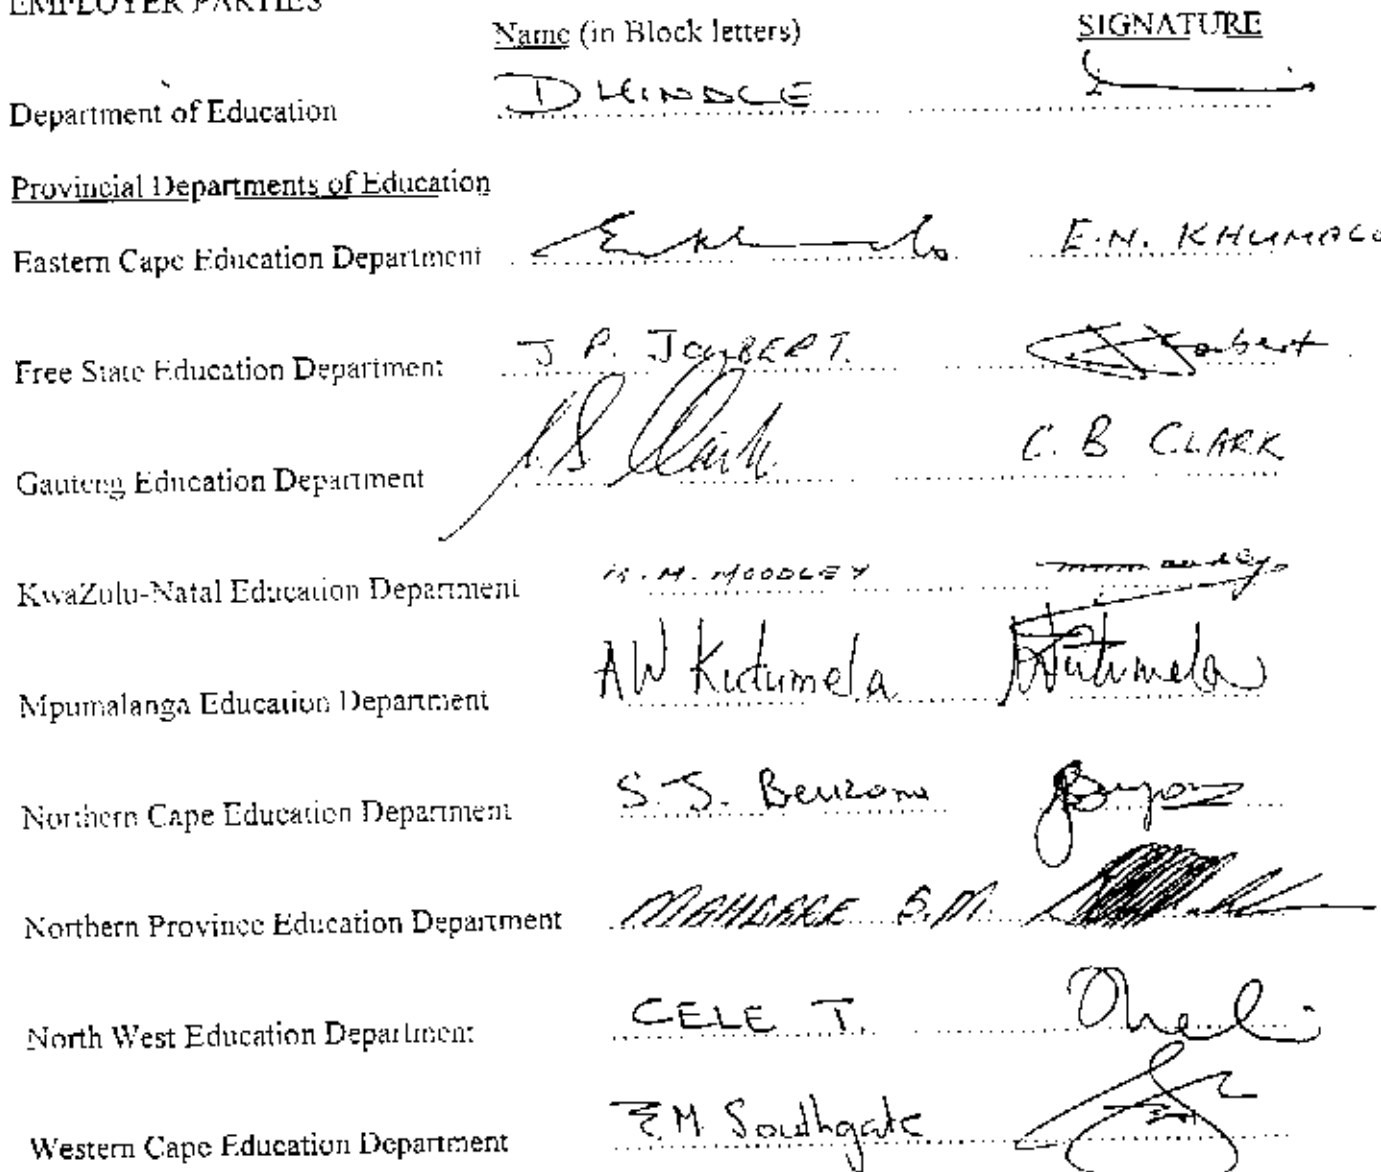 EMPLOYER PARTIES
Name (in Block letters) SIGNATURE
Department of Education D HINDLE
Provincial Departments of Education
Eastern Cape Education Department E.N. KHUMALO
Free State Education Department J P. JOUBERT. Joubert
Gauteng Education Department C.B. Clark C. B CLARK
KwaZulu-Natal Education Department M. MOODLEY
Mpumalanga Education Department AW Kutumela Kutumela
Northern Cape Education Department S.J.
Northern Province Education Department
North West Education Department CELE T.
Western Cape Education Department E.M Southgate